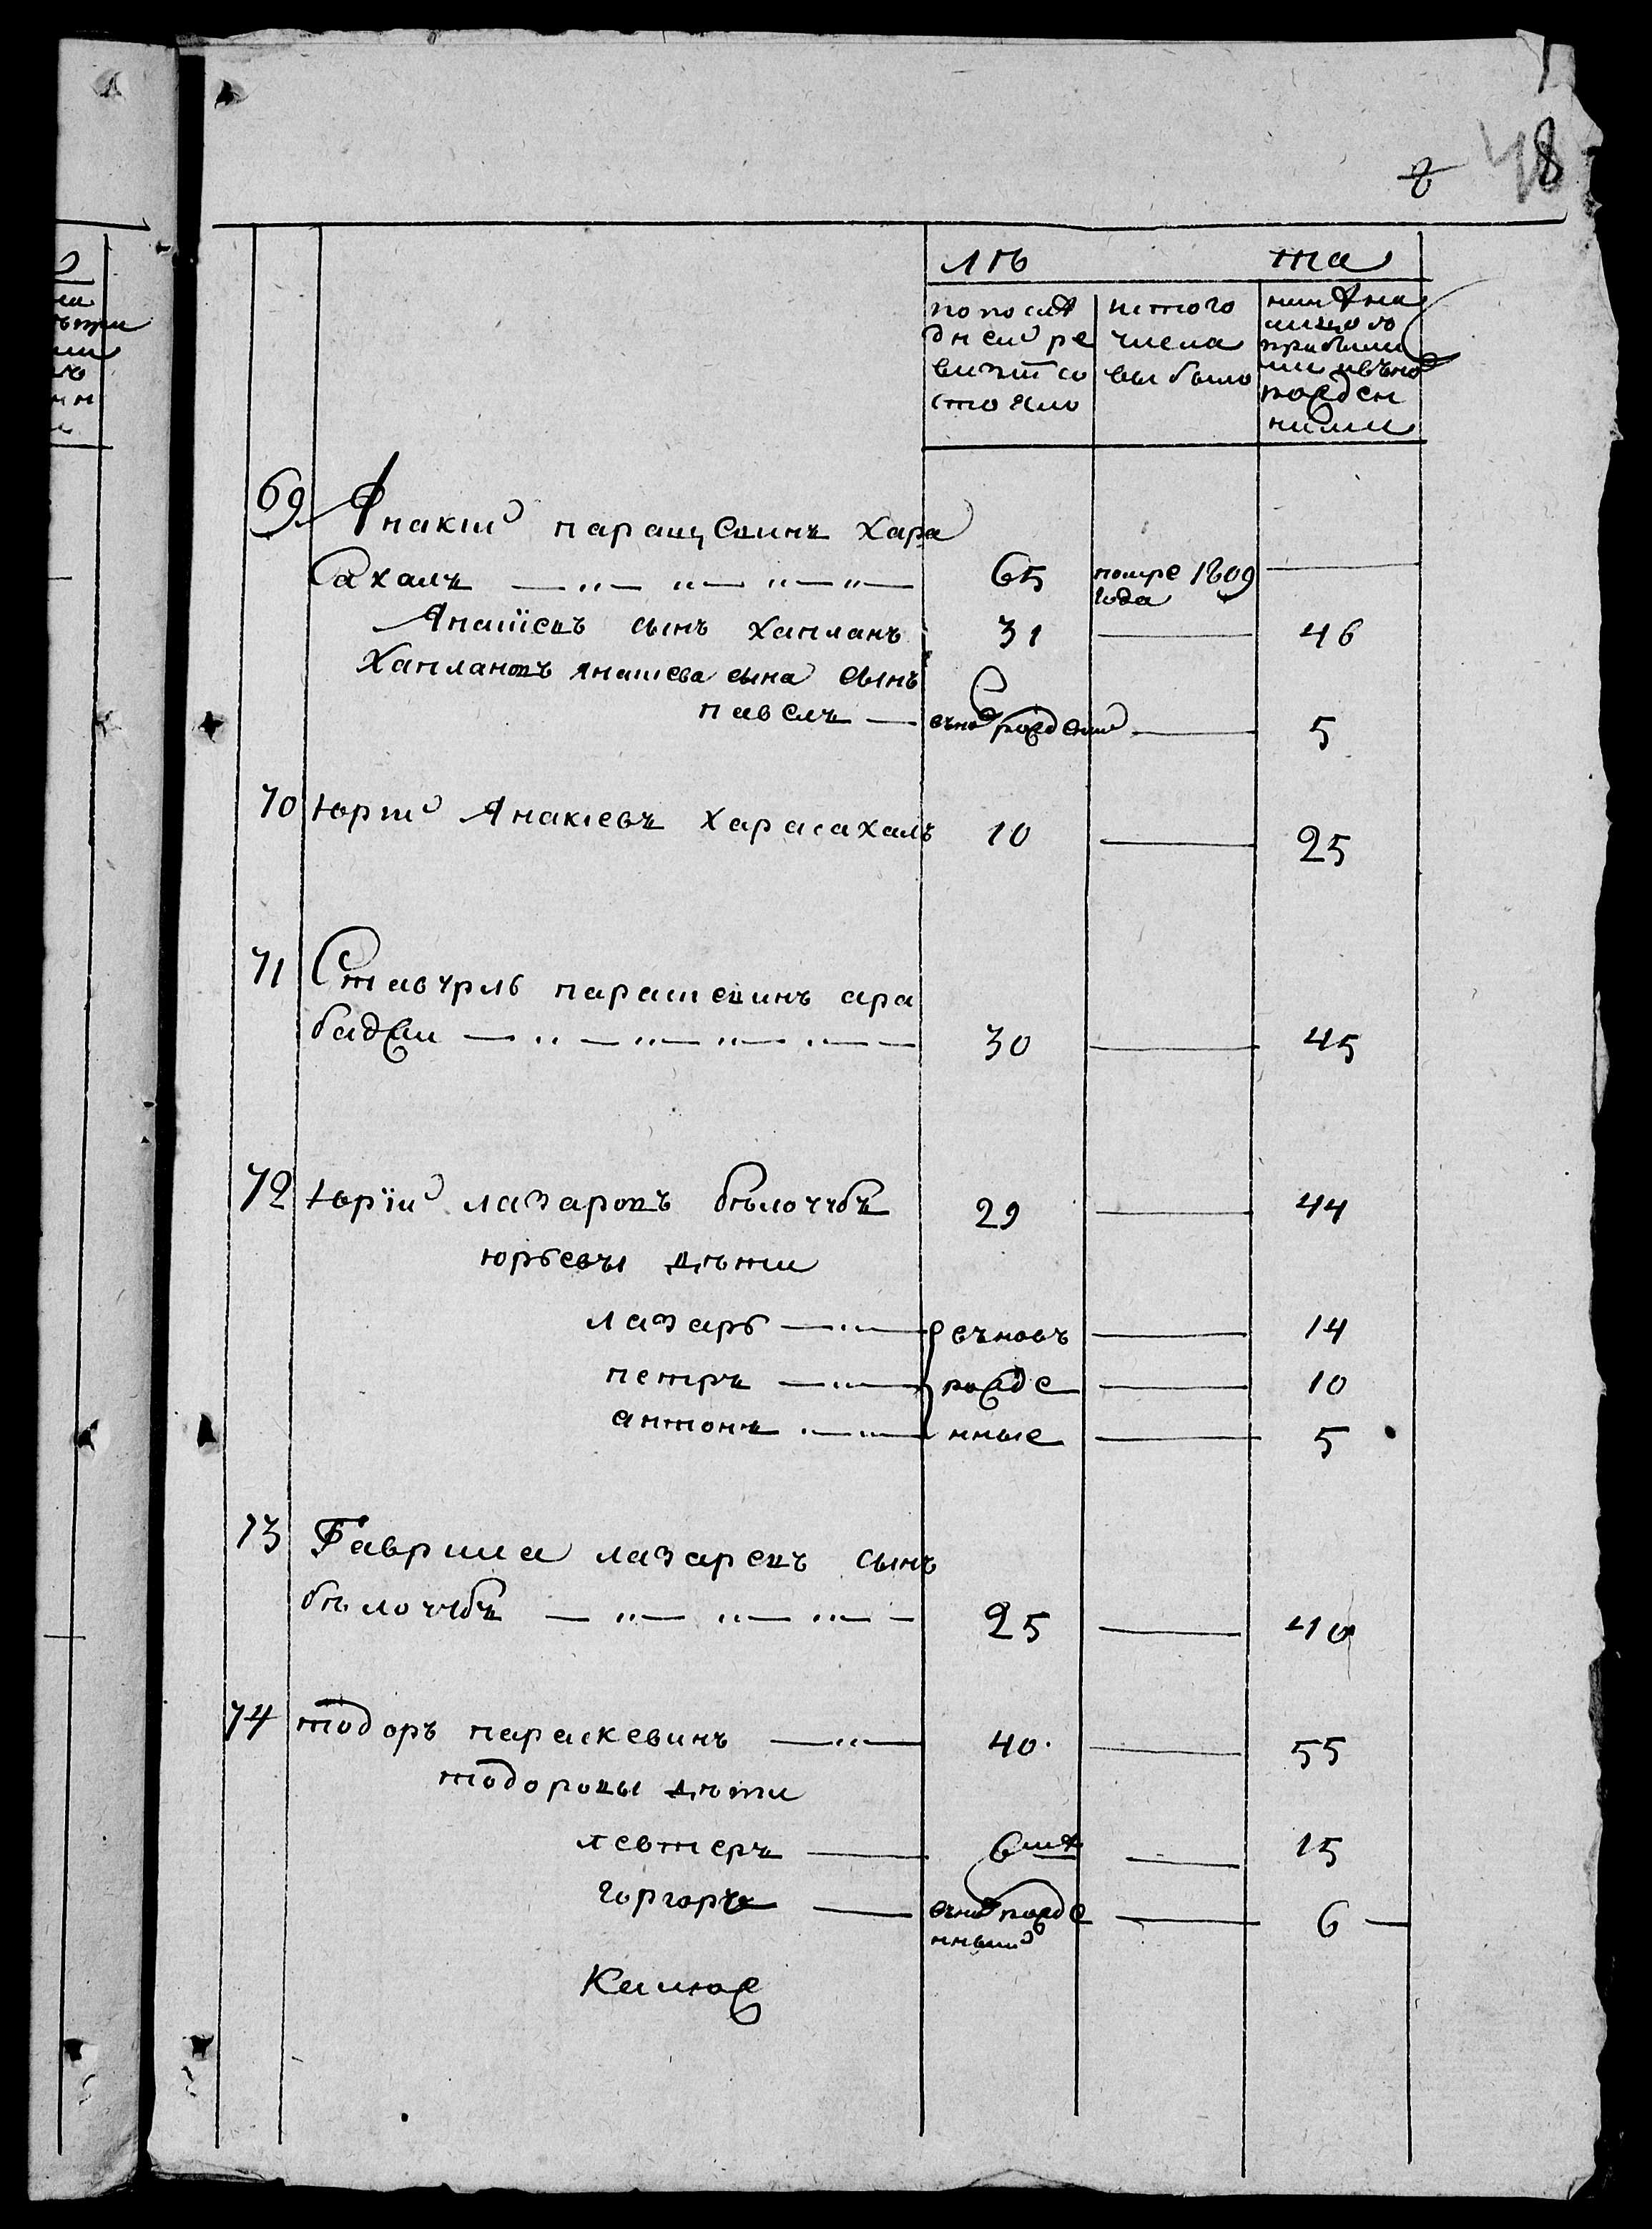 48
лѣ та
по послѣ
дней ре
визiи со
стояло
ис того
числа
выбыло
нынѣ на
лицо съ
прибылы
ми и въновѣ
рожден
ными
69 Анакiй паращевинъ хара
сахалъ 65 помре 1809
года
Анашевъ сынъ Капланъ 31 46
Каплановъ Анашева сына сынъ
павелъ въновѣ рожденый 5
70 Юрий Анакiевъ Харасахалъ 10 25
71 Ставърль парашевинъ ара
баджи 30 45
72 Юрiй лазаровъ бѣлочубъ 29 44
юрьевы дѣти
лазарь въновъ 14
петръ рожде 10
антонъ нные 5
73 Гаврила лазаревъ сынъ
бѣлочубъ 25 40
74 тодоръ параскевинъ 40 55
тодоровы дѣти
левтеръ 15
горгоръ въновѣ рожде 6
нный